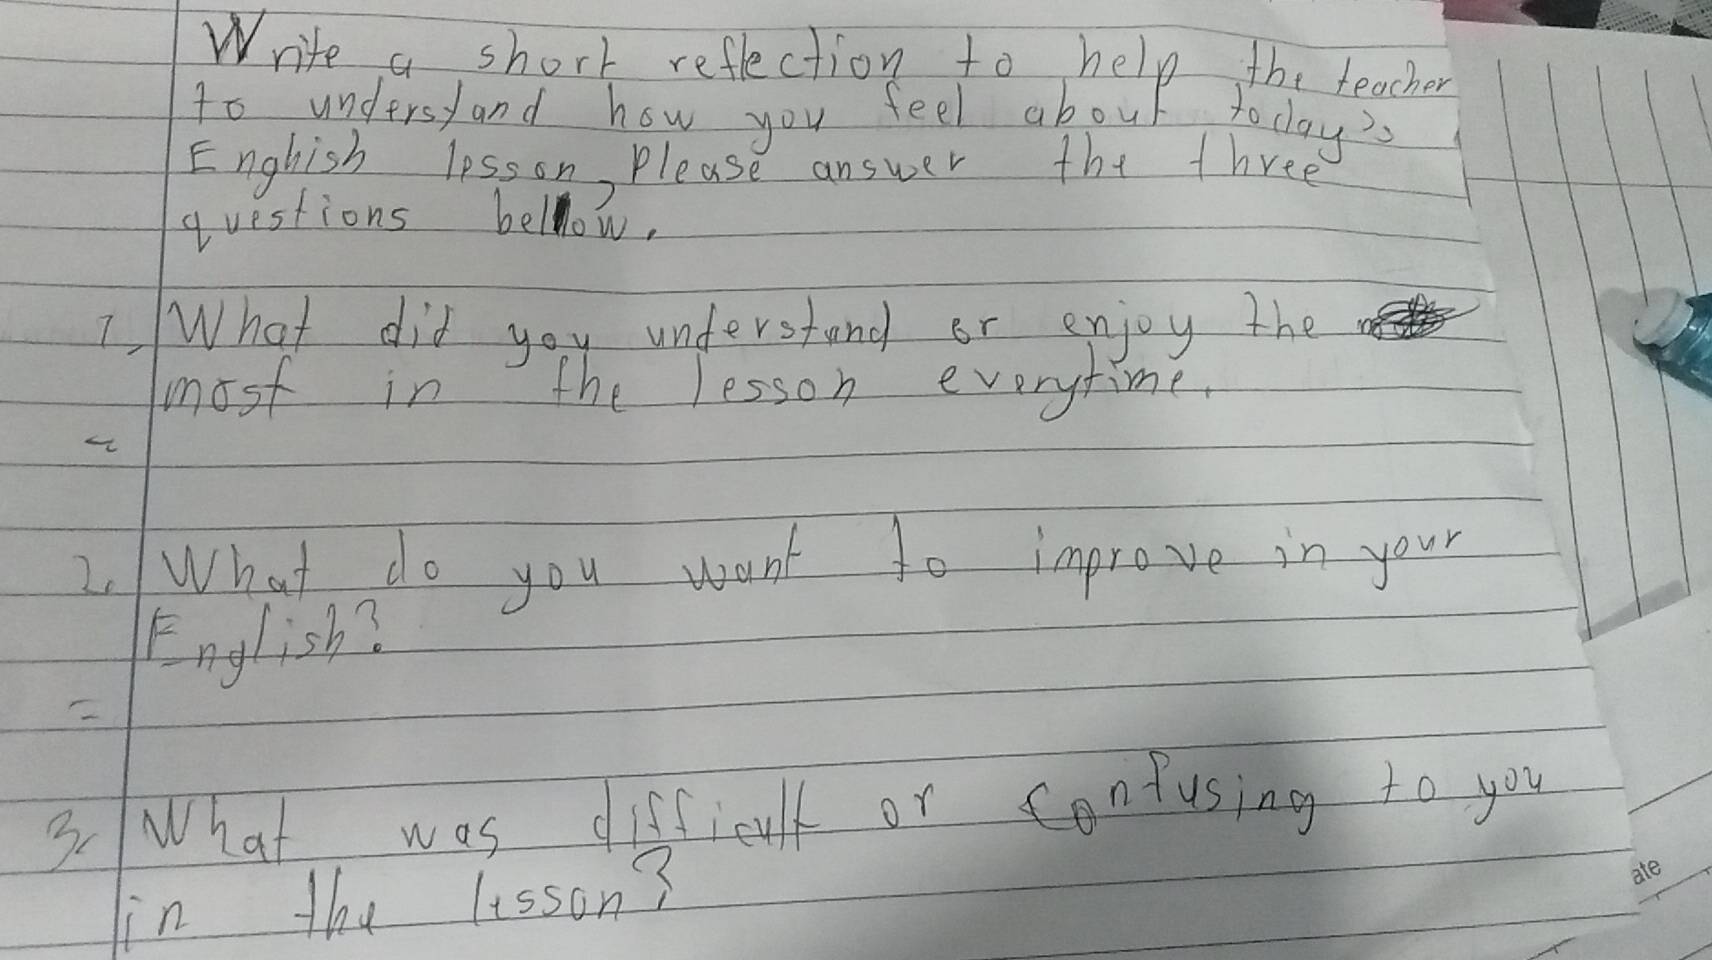 Write a short reflection to help the teacher
to understand how you feel about today's
Enghish lesson, Please answer the three
questions bellow.
1, What did you understand or enjoy the
most in the lesson everytime.
2. What do you want to improve in your
English?
=
3, What was difficult or confusing to you
in the lesson?
ate